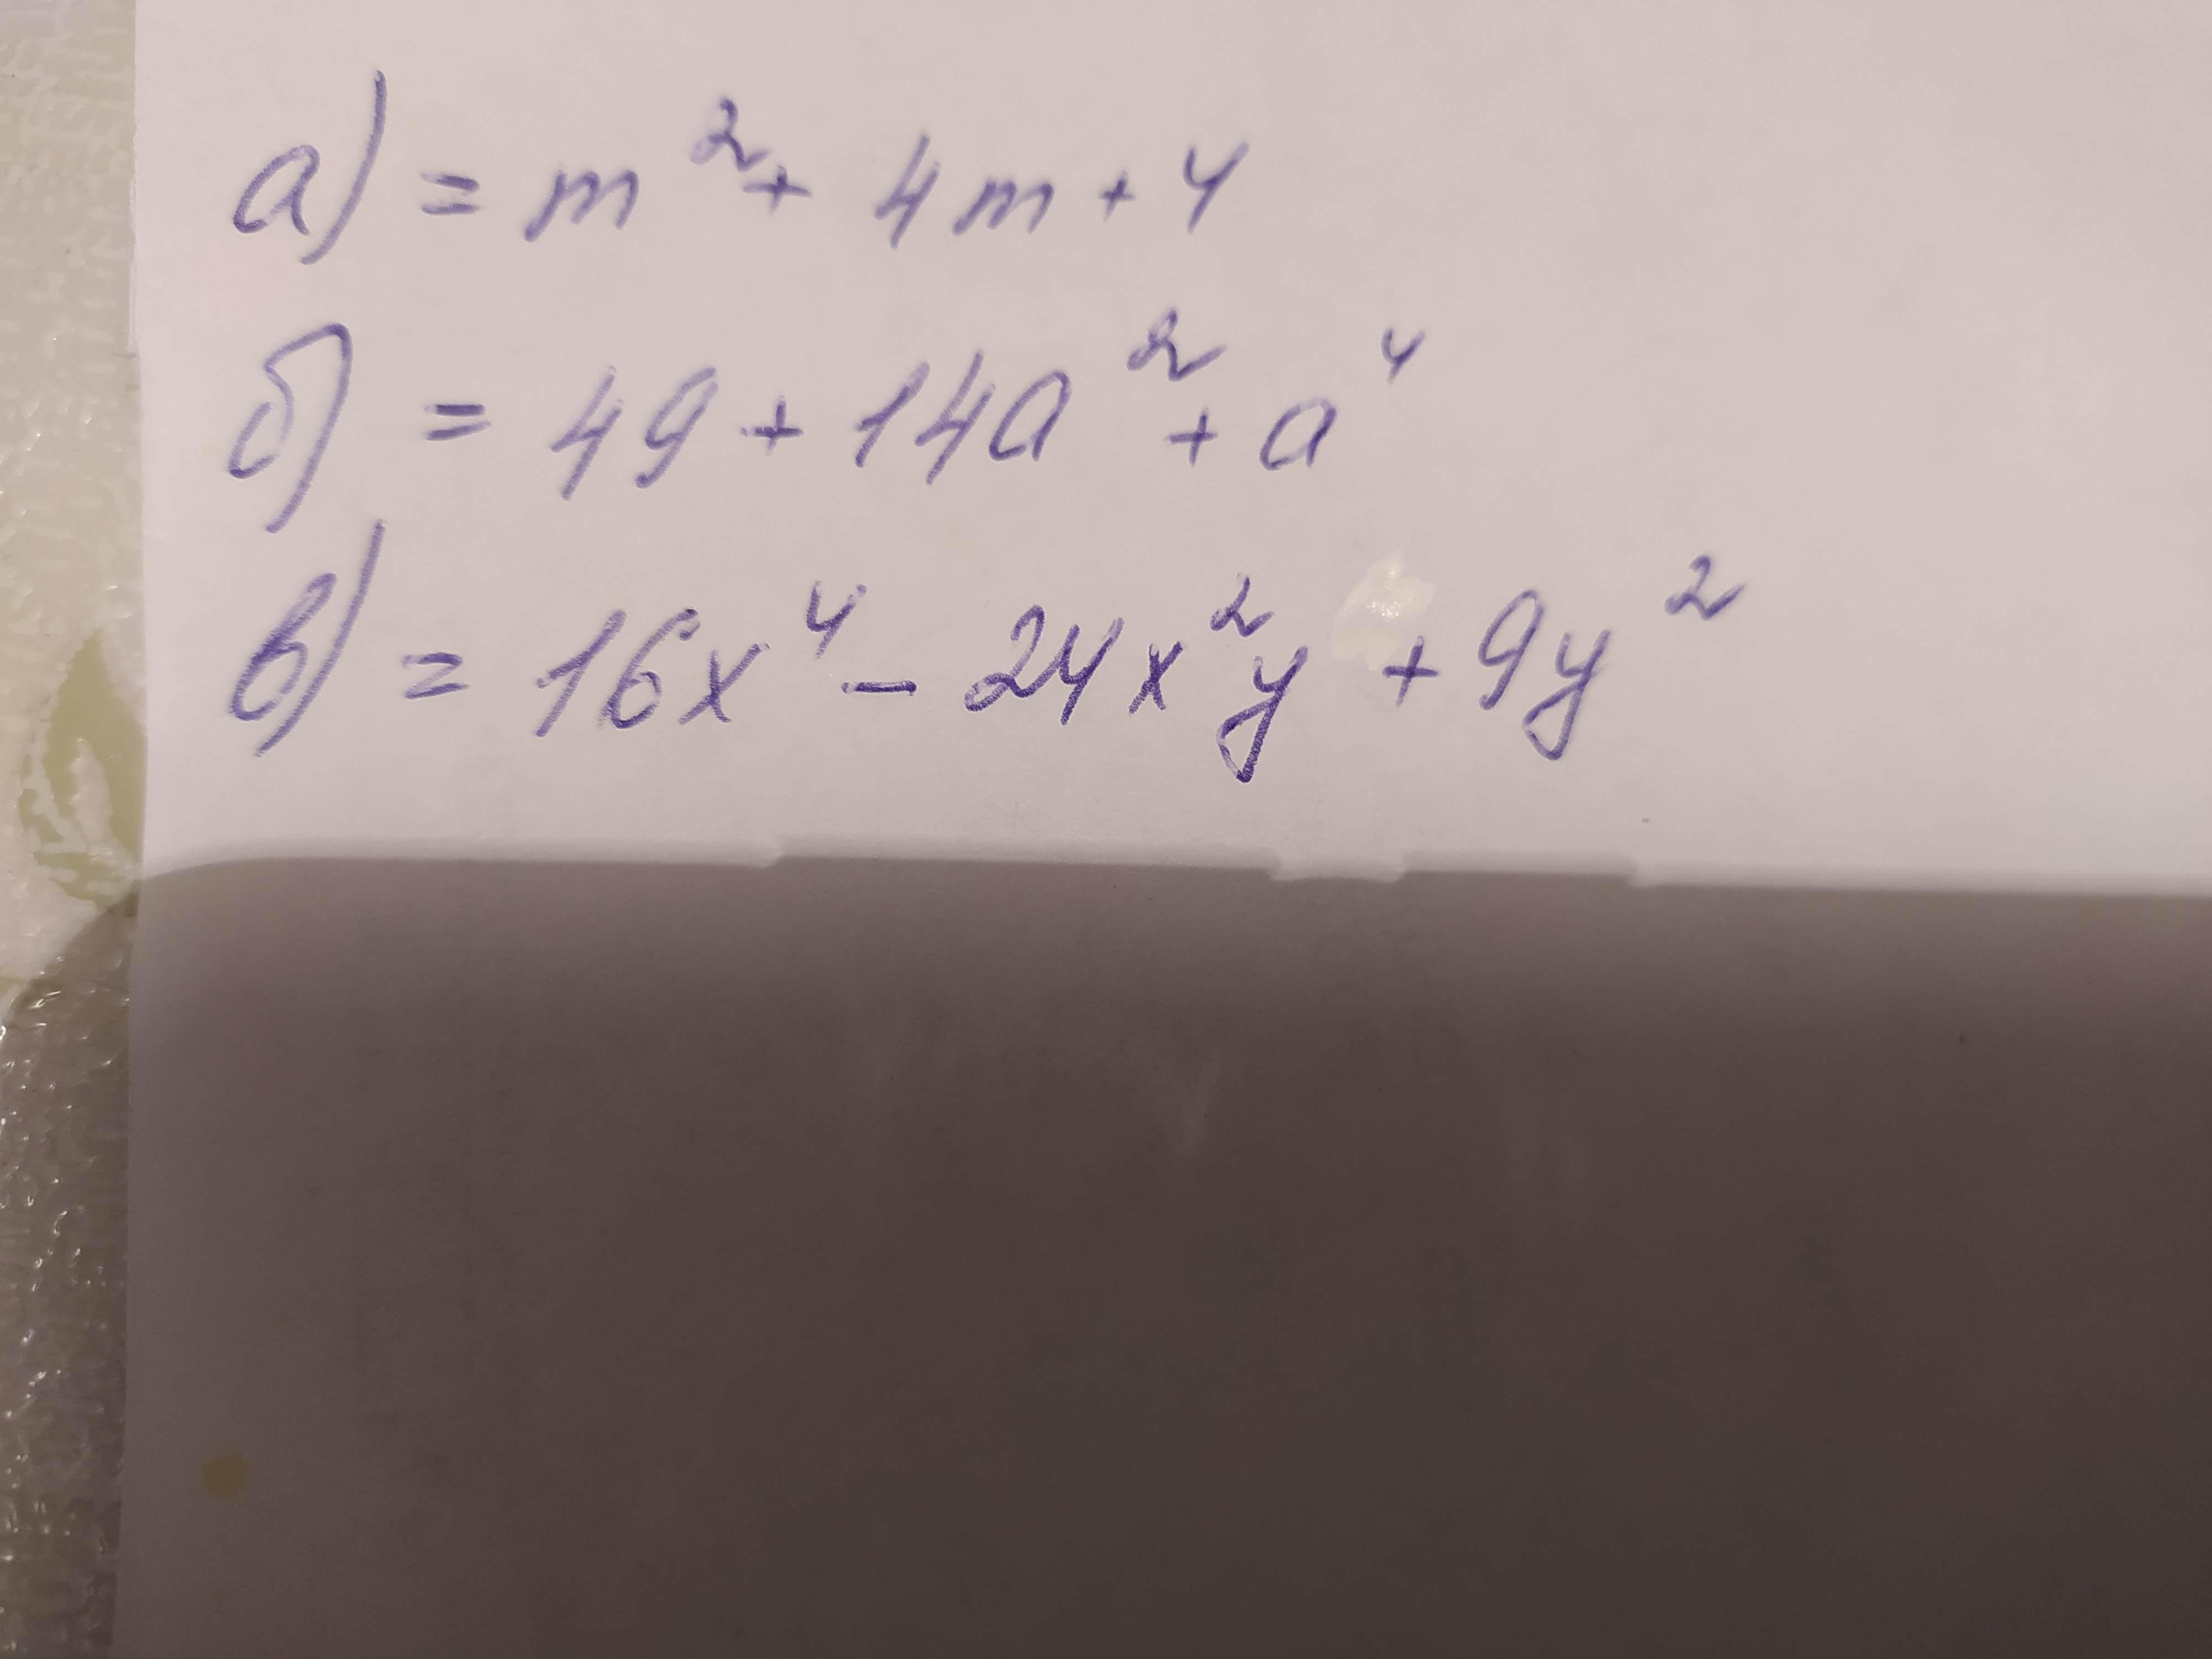 а) = m² + 4m + 4
б) = 49 + 14a² + a⁴
в) = 16x⁴ - 24x²y + 9y²